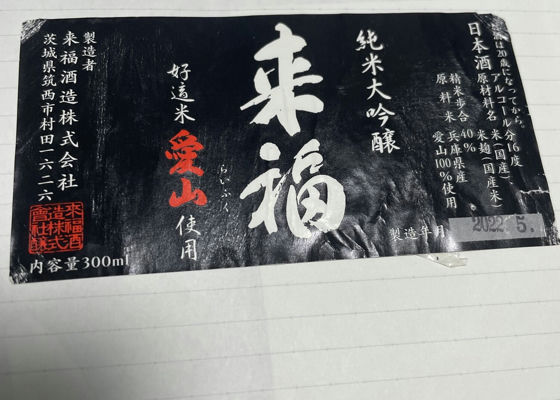 お酒は20歳になってから。
日本酒 アルコール分16度
原材料名 米(国産)
米麹(国産米)
精米歩合 40%
原料米 兵庫県産
愛山100%使用
製造年月 2022.5.
純米大吟醸
来福
らいふく
好適米
愛山
使用
製造者
来福酒造株式会社
茨城県筑西市村田一六二六
来福酒
造株式
會社醸
内容量300ml